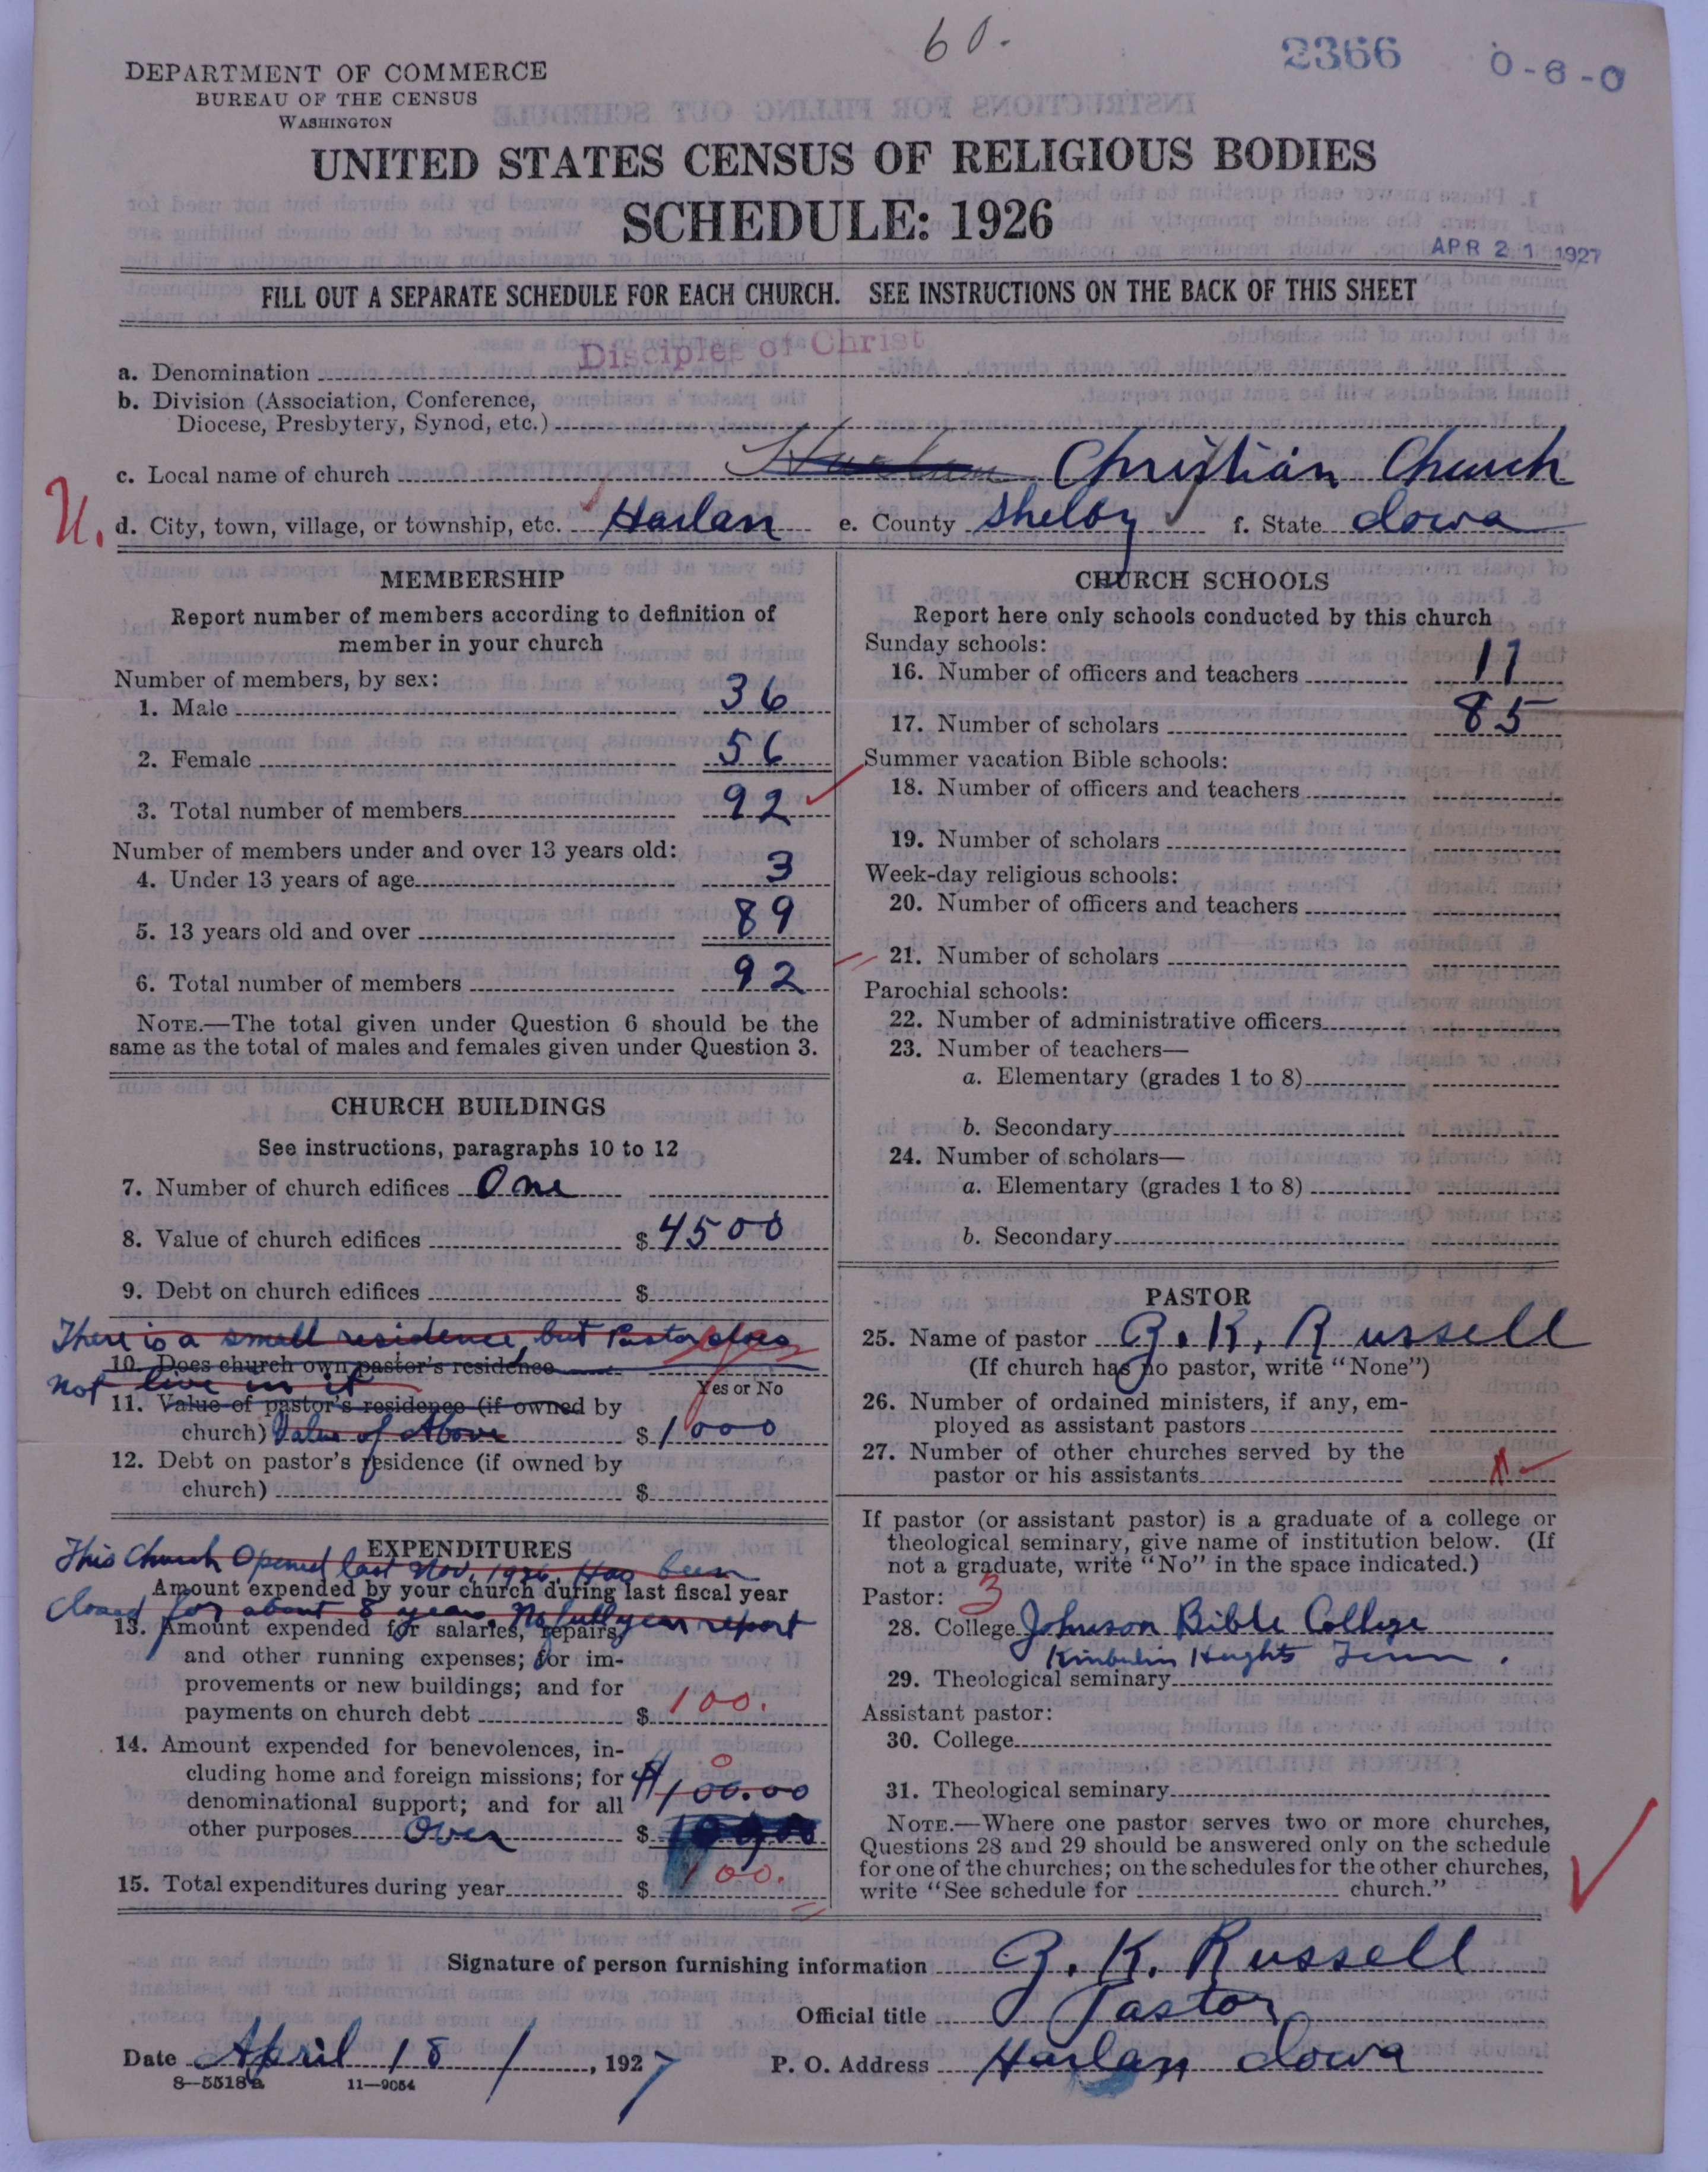 60.
2366 0-6-0
DEPARTMENT OF COMMERCE
BUREAU OF THE CENSUS
WASHINGTON
UNITED STATES CENSUS OF RELIGIOUS BODIES
SCHEDULE: 1926
APR 21 1927
FILL OUT A SEPARATE SCHEDULE FOR EACH CHURCH. SEE INSTRUCTIONS ON THE BACK OF THIS SHEET
Disciples of Christ
a. Denomination
b. Division (Association, Conference,
Diocese, Presbytery, Synod, etc.)
c. Local name of church Harlan Christian Church
U. d. City, town, village, or township, etc. Harlan e. County Shelby f. State Iowa
MEMBERSHIP
Report number of members according to definition of
member in your church
Number of members, by sex:
1. Male 36
2. Female 56
3. Total number of members 92
Number of members under and over 13 years old:
4. Under 13 years of age 3
5. 13 years old and over 89
6. Total number of members 92
NOTE.—The total given under Question 6 should be the
same as the total of males and females given under Question 3.
CHURCH BUILDINGS
See instructions, paragraphs 10 to 12
7. Number of church edifices One
8. Value of church edifices $ 4500
9. Debt on church edifices $
There is a small residence, but Pastor does
10. Does church own pastor's residence yes
not live in it
Yes or No
11. Value of pastor's residence (if owned by
church) Value of Above $ 1000
12. Debt on pastor's residence (if owned by
church) $
EXPENDITURES
This Church Opened last Nov. 1926. Has been
Amount expended by your church during last fiscal year
closed for about 8 years. No full year report
13. Amount expended for salaries, repairs,
and other running expenses; for im-
provements or new buildings; and for
payments on church debt $ 100.
14. Amount expended for benevolences, in-
cluding home and foreign missions; for 0
denominational support; and for all $100.00
other purposes Over $
15. Total expenditures during year $ 100.
CHURCH SCHOOLS
Report here only schools conducted by this church
Sunday schools:
16. Number of officers and teachers 11
17. Number of scholars 85
Summer vacation Bible schools:
18. Number of officers and teachers
19. Number of scholars
Week-day religious schools:
20. Number of officers and teachers
21. Number of scholars
Parochial schools:
22. Number of administrative officers
23. Number of teachers—
a. Elementary (grades 1 to 8)
b. Secondary
24. Number of scholars—
a. Elementary (grades 1 to 8)
b. Secondary
PASTOR
25. Name of pastor G. K. Russell
(If church has no pastor, write "None")
26. Number of ordained ministers, if any, em-
ployed as assistant pastors
27. Number of other churches served by the
pastor or his assistants
If pastor (or assistant pastor) is a graduate of a college or
theological seminary, give name of institution below. (If
not a graduate, write "No" in the space indicated.)
Pastor: 3
28. College Johnson Bible College
Kimberlin Heights Tenn.
29. Theological seminary
Assistant pastor:
30. College
31. Theological seminary
NOTE.—Where one pastor serves two or more churches,
Questions 28 and 29 should be answered only on the schedule
for one of the churches; on the schedules for the other churches,
write "See schedule for church."
Signature of person furnishing information G. K. Russell
Official title Pastor
Date April 18 /, 1927 P. O. Address Harlan Iowa
8—5518a 11—9054